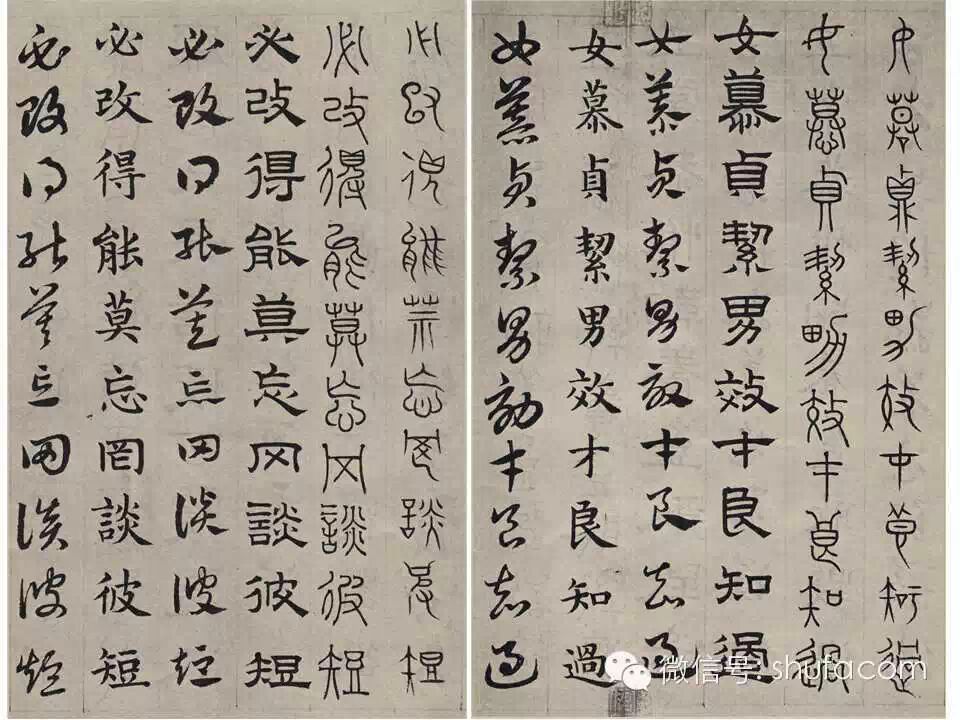 女慕貞絜男效才良知過
女慕貞絜男效才良知過
女慕貞絜男效才良知過
女慕貞絜男效才良知過
女慕貞絜男效才良知過
女慕貞絜男效才良知過
必改得能莫忘罔談彼短
必改得能莫忘罔談彼短
必改得能莫忘罔談彼短
必改得能莫忘罔談彼短
必改得能莫忘罔談彼短
必改得能莫忘罔談彼短
微信号: shufacom